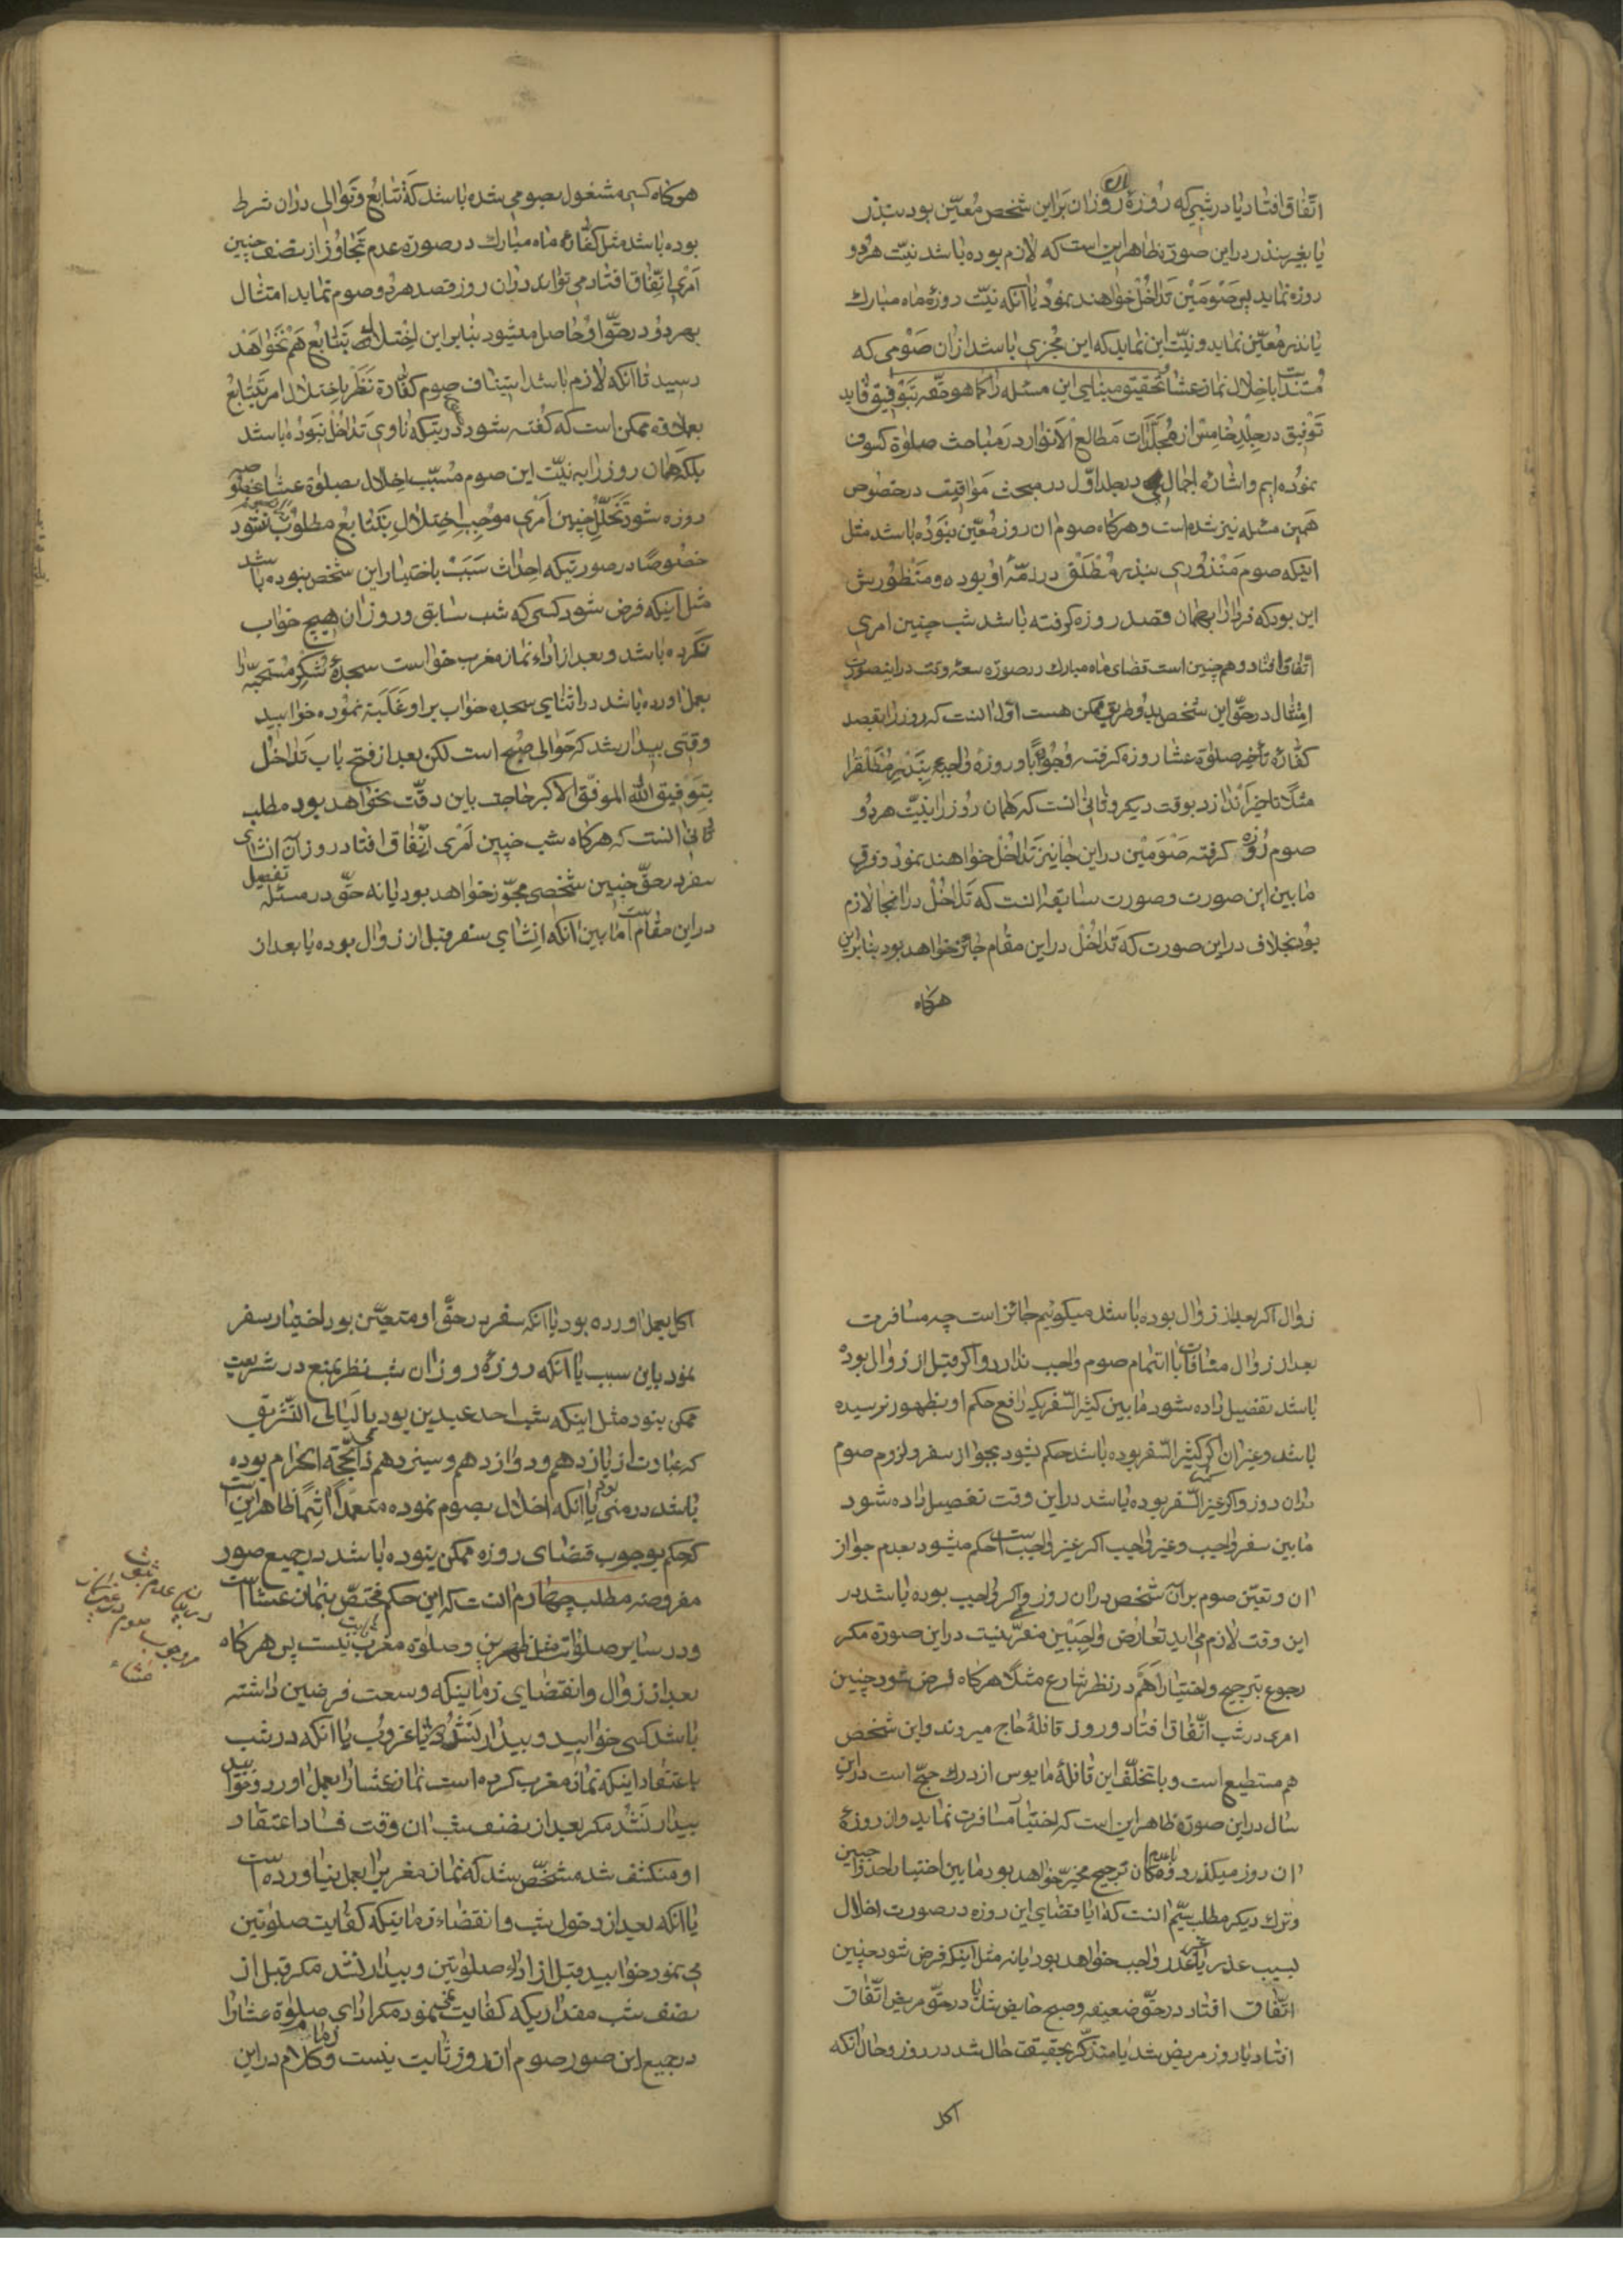 اتّفاق افتاد یا در شبی که روزهٔ روز ان بر این شخص مُعیّن بود بنذر
یا بغیر نذر در این صورة ظاهر این است که لازم بوده باشد نیّت هر دو
روزه نماید پس صَوْمَیْن تَداخُل خواهند نمود یا آنکه نیّت روزهٔ ماه مبارك
یا نذر مُعیّن نماید و نیّت این نماید که این مُجزی باشد از ان صَوْمی که
باخلال نماز عشا تحقیق مبنای این مسئله را کما هو حقّه بتوفیق قاید
تَوْفیق در جِلد خامس از مُجَلَّدات مَطالع الأنوار در مَباحث صلوٰة کسوف
نموده ایم و اشارهٔ اجمالی در جلد اوّل در مبحث مَواقیت در خصوص
همین مسئله نیز شده است و هر کاه صوم ان روز مُعیّن نبَوده باشد مثل
اینکه صوم مَنْذُوری بنذر مُطْلَق در ذمّهٔ او بوده و مَنْظُورش
این بود که فردا را بهمان قصد روزه کرفته باشد شب چنین امری
اتّفاق افتاد و همچنین است قضای ماه مبارك در صورة سعهٔ وقت در اینصورة
امتثال در حقّ این شخص بدو طریق ممکن هست اوّل انست که روز را بقصد
کفّارهٔ تأخیر صلوٰة عشا روزه کرفته وُجُوبًا و روزهٔ واجب بنَذْرِ مُطْلَق را
مثلا تاخیر اندازد بوقت دیکر و ثانی انست که همان روز را بنیّت هر دو
صوم روزه کرفته صَوْمَیْن در این جا نیز تَداخُل خواهند نمود و فرق
ما بین این صورت و صورت سابقه انست که تَداخُل در انجا لازم
بود بخلاف در این صورت که تَداخُل در این مقام جائز خواهد بود بنابراین
هرکاه
هرکاه کسی مشغول بصومی شده باشد که تَتابُع و تَوالی در ان شرط
بوده باشد مثل کفّارهٔ ماه مبارك در صورة عدم تَجاوُز از نصف چنین
اَمْری اتّفاق افتاد می تواند در ان روز قصد هر دو صوم نماید امتثال
بهر دو در حقّ او حاصل میشود بنا بر این اختلال بتَتابُع هم نَخواهَد
رسید تا آنکه لازم باشد استیناف صوم کفّارة نَظَر باختلال امر تَتابُع
بعلاوه ممکن است که کفته شود در صورتیکه ناوی تَداخُل نبوده باشد
بلکه همان روز را به نیّت این صوم مُسبّب اخلال بصلوٰة عشا
روزه شود تَخَلُّل چنین اَمْری مُوجب اختلال بتَتابُع مطلوب نشود
خصوصًا در صورتیکه احداث سَبَبْ باختیار این شخص نبوده باشد
مثل اینکه فرض شود کسی که شب سابق و روز ان هیچ خواب
نکرده باشد و بعد از اداء نماز مغرب خواست سجدهٔ شکر مُستحبّه را
بعمل اورده باشد در اثنای سجده خواب بر او غَلَبَه نموده خوابید
وقتی بیدار شد که حَوالی صُبح است لکن بعد از فتح باب تَداخُل
بتَوْفیق الله الموفّق الاکبر حاجت باین دقّت نخواهد بود مطلب
ثانی انست که هرکاه شب چنین اَمْری اتّفاق افتاد روز آن انشای
سفر در حقّ چنین شخصی مجوّز خواهد بود یا نه حقّ در مسئله تفصیل
در این مقام است ما بین آنکه انشای سفر قبل از زوال بوده یا بعد از
زوال اکر بعد از زوال بوده باشد میکوئیم جائز است چه مسافرت
بعد از زوال منافات با اتمام صوم واجب ندارد و اکر قبل از زوال بوده
باشد تفصیل داده شود ما بین کثیر السّفریکه رافع حکم او بظهور نرسیده
باشد و غیر ان اکر کثیر السّفر بوده باشد حکم شود بجواز سفر و لزوم صوم
در ان روز و اکر غیر کثیر السّفر بوده باشد در این وقت تفصیل داده شود
ما بین سفر واجب و غیر واجب اکر غیر واجب است حکم میشود بعدم جواز
ان و تعیّن صوم بر آن شخص در ان روز و اکر واجب بوده باشد در
این وقت لازم می اید تعارض واجبَیْن مَفَرّی نیست در این صورة مکر
رجوع بترجیح و اختیار اَهَمّ در نظر شارع مثلا هرکاه فرض شود چنین
امری در شب اتّفاق افتاد و روز قافلهٔ حاج میروند و این شخص
هم مستطیع است و با تخلّف این قافله مایوس از درك حجّ است در این
سال در این صورة ظاهر این است که اختیار مسافرت نماید و از روزهٔ
ان روز میکذرد و ترجیح مخیّر خواهد بود ما بین اختیار احد واجبین
و ترك دیکر مطلب سیّم انست که ایا قضای این روزه در صورت اخلال
بسبب عذر یا غیر عذر واجب خواهد بود یا نه مثل اینکه فرض شود چنین
اتّفاق افتاد در حقّ ضعیفه و صبح حایض شد یا در حقّ مریض اتّفاق
افتاد یا روز مریض شد یا متذکّر بحقیقت حال شد در روز و حال انکه
اکل
اکل بعمل اورده بود یا آنکه سفر در حقّ او متعیّن بود اختیار سفر
نمود باین سبب یا آنکه روزهٔ روز ان شب نظر بمنع در شریعت
ممکن نبود مثل اینکه شب احد عیدین بود یا لَیالی التّشریق
که عبارت از یازدهم و دوازدهم و سیزدهم ذی الحجّة الحرام بوده
باشد در منی بود یا آنکه اخلال بصوم نموده متعمّدًا اثِمًا ظاهر این است
که حکم بوجوب قضای روزه ممکن نبوده باشد در جمیع صور
مفروضه مطلب چهارم انست که این حکم مختصّ بنماز عشا است
و در سایر صلوات مثل ظهرین و صلوٰة مغرب ثابت نیست پس هرکاه
بعد از زوال و انقضای زمانیکه وسعت فرضین داشته
باشد کسی خوابید و بیدار نَشُد تا غروب یا آنکه در شب
باعتقاد اینکه نماز مغرب کرده است نماز عشا را بعمل اورد و خوابید
بیدار نَشُد مکر بعد از نصف شب ان وقت فساد اعتقاد
او منکشف شد مشخّص شد که نماز مغرب را بعمل نیاورده است
یا آنکه بعد از دخول شب و انقضاء زمانیکه کفایت صلوتین
می نمود خوابید قبل از اداء صلوتین و بیدار نشد مکر قبل از
نصف شب مقداریکه کفایت نمی نمود مکر ادای صلوٰة عشا را
در جمیع این صور صوم ان روز ثابت نیست و کلام در این